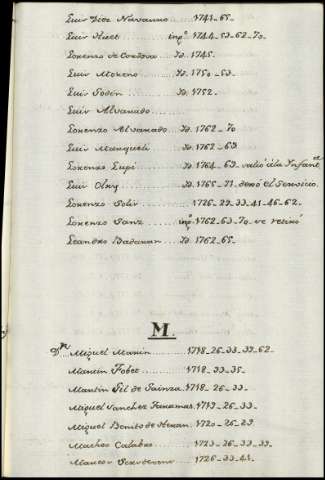 Luis Diez Navarro......1741-65-
Luis Huet......ingº 1744-53-62-70-
Lorenzo de Cordova......Yd. 1745-
Luis Moreno......Yd. 1750-53-
Luis Godin......Yd. 1752-
Luis Alvarado......
Lorenzo Alvarado......Yd. 1762-70
Luis Marqueli......Yd. 1762-69
Lorenzo Lupi......Yd. 1764-69- salió á la Infant
Luis Olny......Yd. 1765-71- dexó el Servicio
Lorenzo Solis......1726-29-33-41-46-62-
Lorenzo Sanz......ingº 1762-63-70- se retiró
Leandro Badaran......Yd. 1762-65-
M.
Dn Miguel Marin......1718-26-33-39-62-
Martin Fobet......1718-33-35-
Martin Gil de Gainza......1718-26-33-
Miguel Sanchez Taramas......1719-26-33-
Miguel Benito de Heran......1720-26-29-
Matheo Calabro......1723-26-33-39-
Marcos Serstevens......1726-33-41-